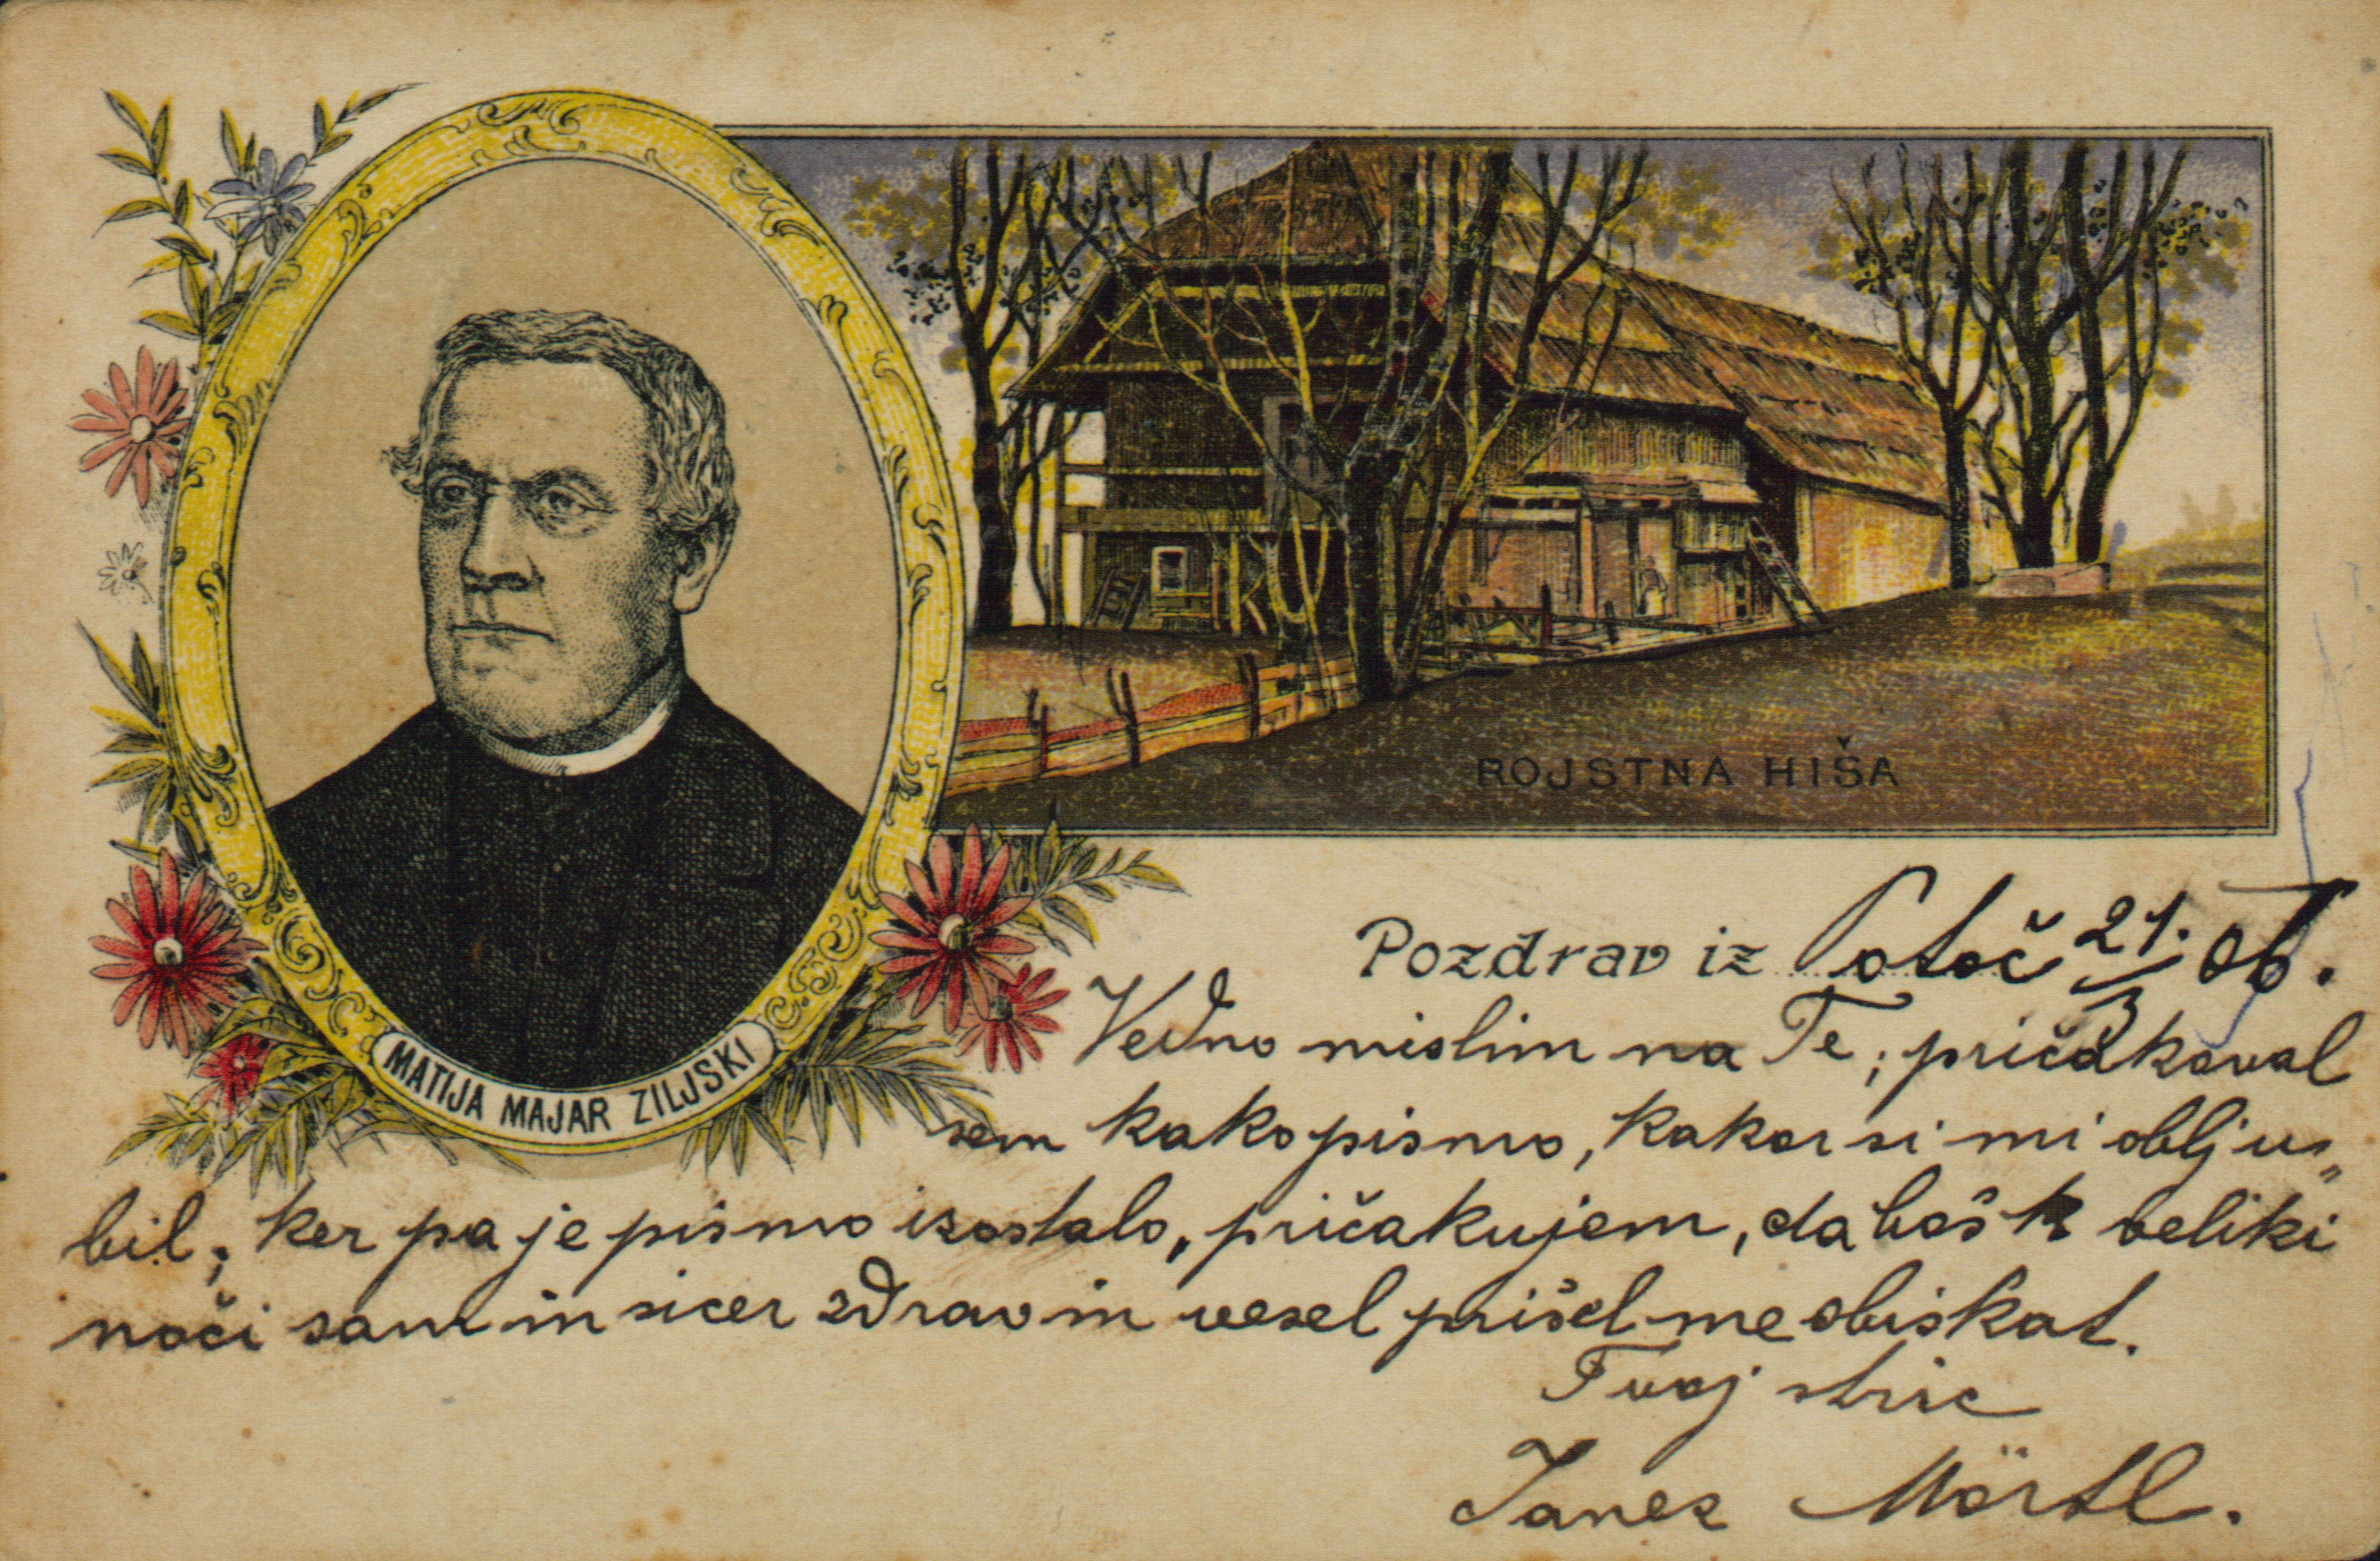 MATIJA MAJAR ZILJSKI
ROJSTNA HIŠA
Pozdrav iz Potoč 21./3 06.
Vedno mislim na Te; pričakoval
sem kako pismo, kakor si mi oblju„
bil; ker pa je pismo izostalo, pričakujem, da boš k veliki
noči sam in sicer zdrav in vesel prišel me obiskat.
Tvoj stric
Janez Mörtl.